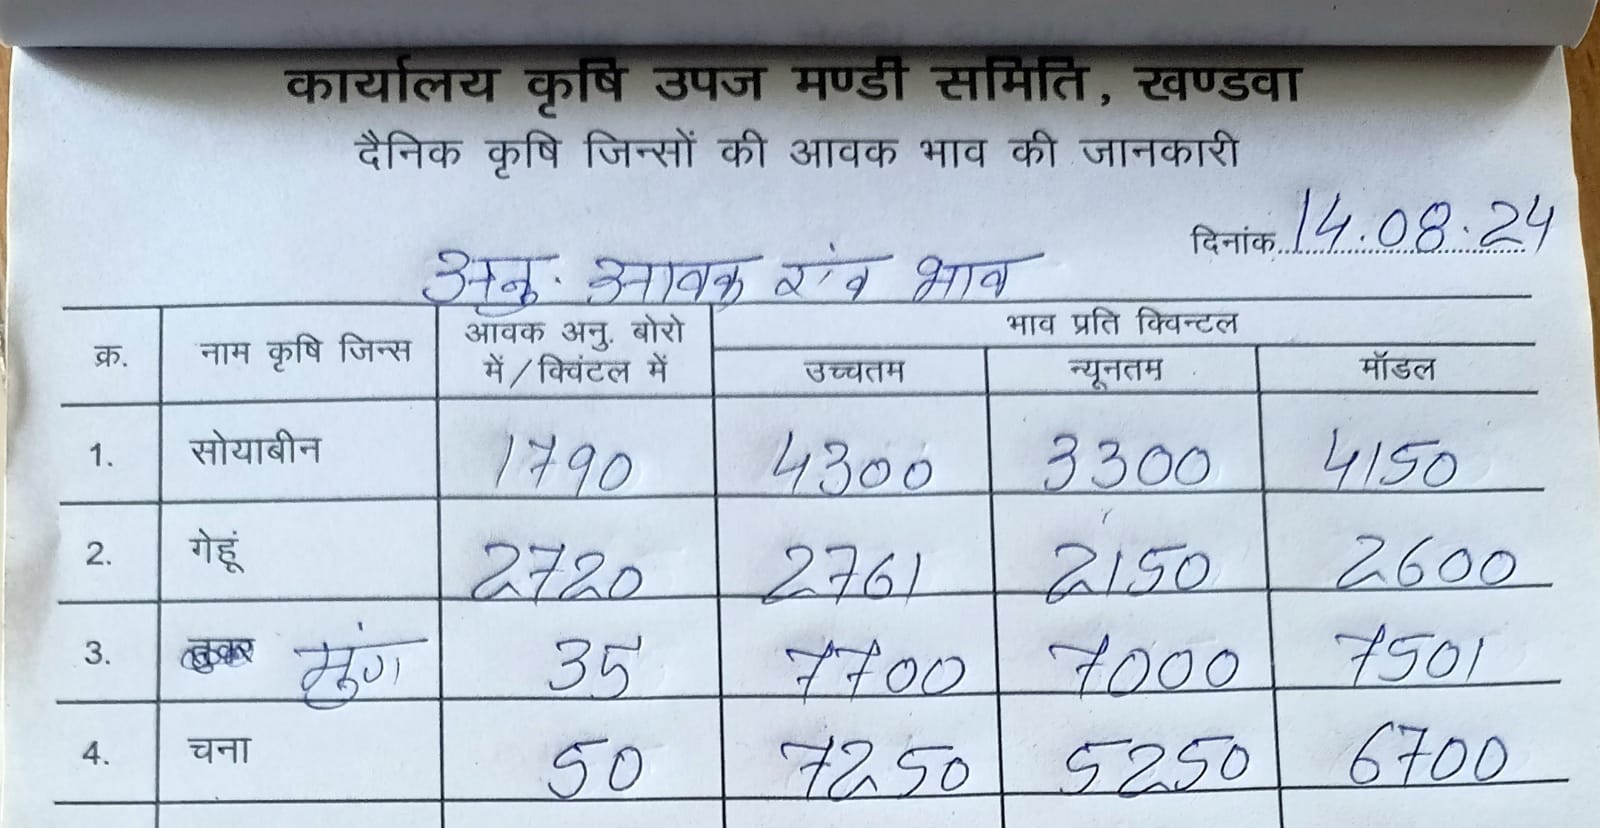 कार्यालय कृषि उपज मण्डी समिति, खण्डवा
दैनिक कृषि जिन्सों की आवक भाव की जानकारी
दिनांक 14.08.24
अनु. आवक एंव भाव
क्र. नाम कृषि जिन्स आवक अनु. बोरो में / क्विंटल में भाव प्रति क्विन्टल
उच्चतम न्यूनतम मॉडल
1. सोयाबीन 1790 4300 3300 4150
2. गेहूं 2720 2761 2150 2600
3. मुंग 35 7700 7000 7501
4. चना 50 7250 5250 6700